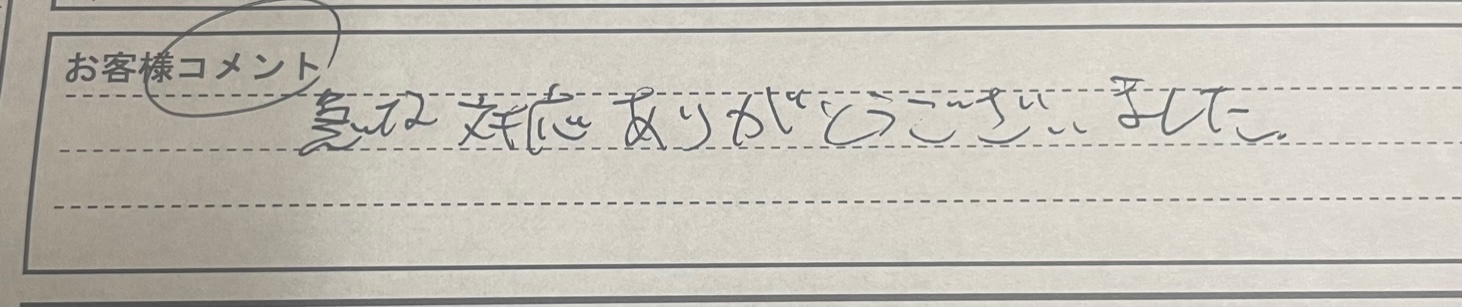 お客様コメント
急な対応ありがとうございました。